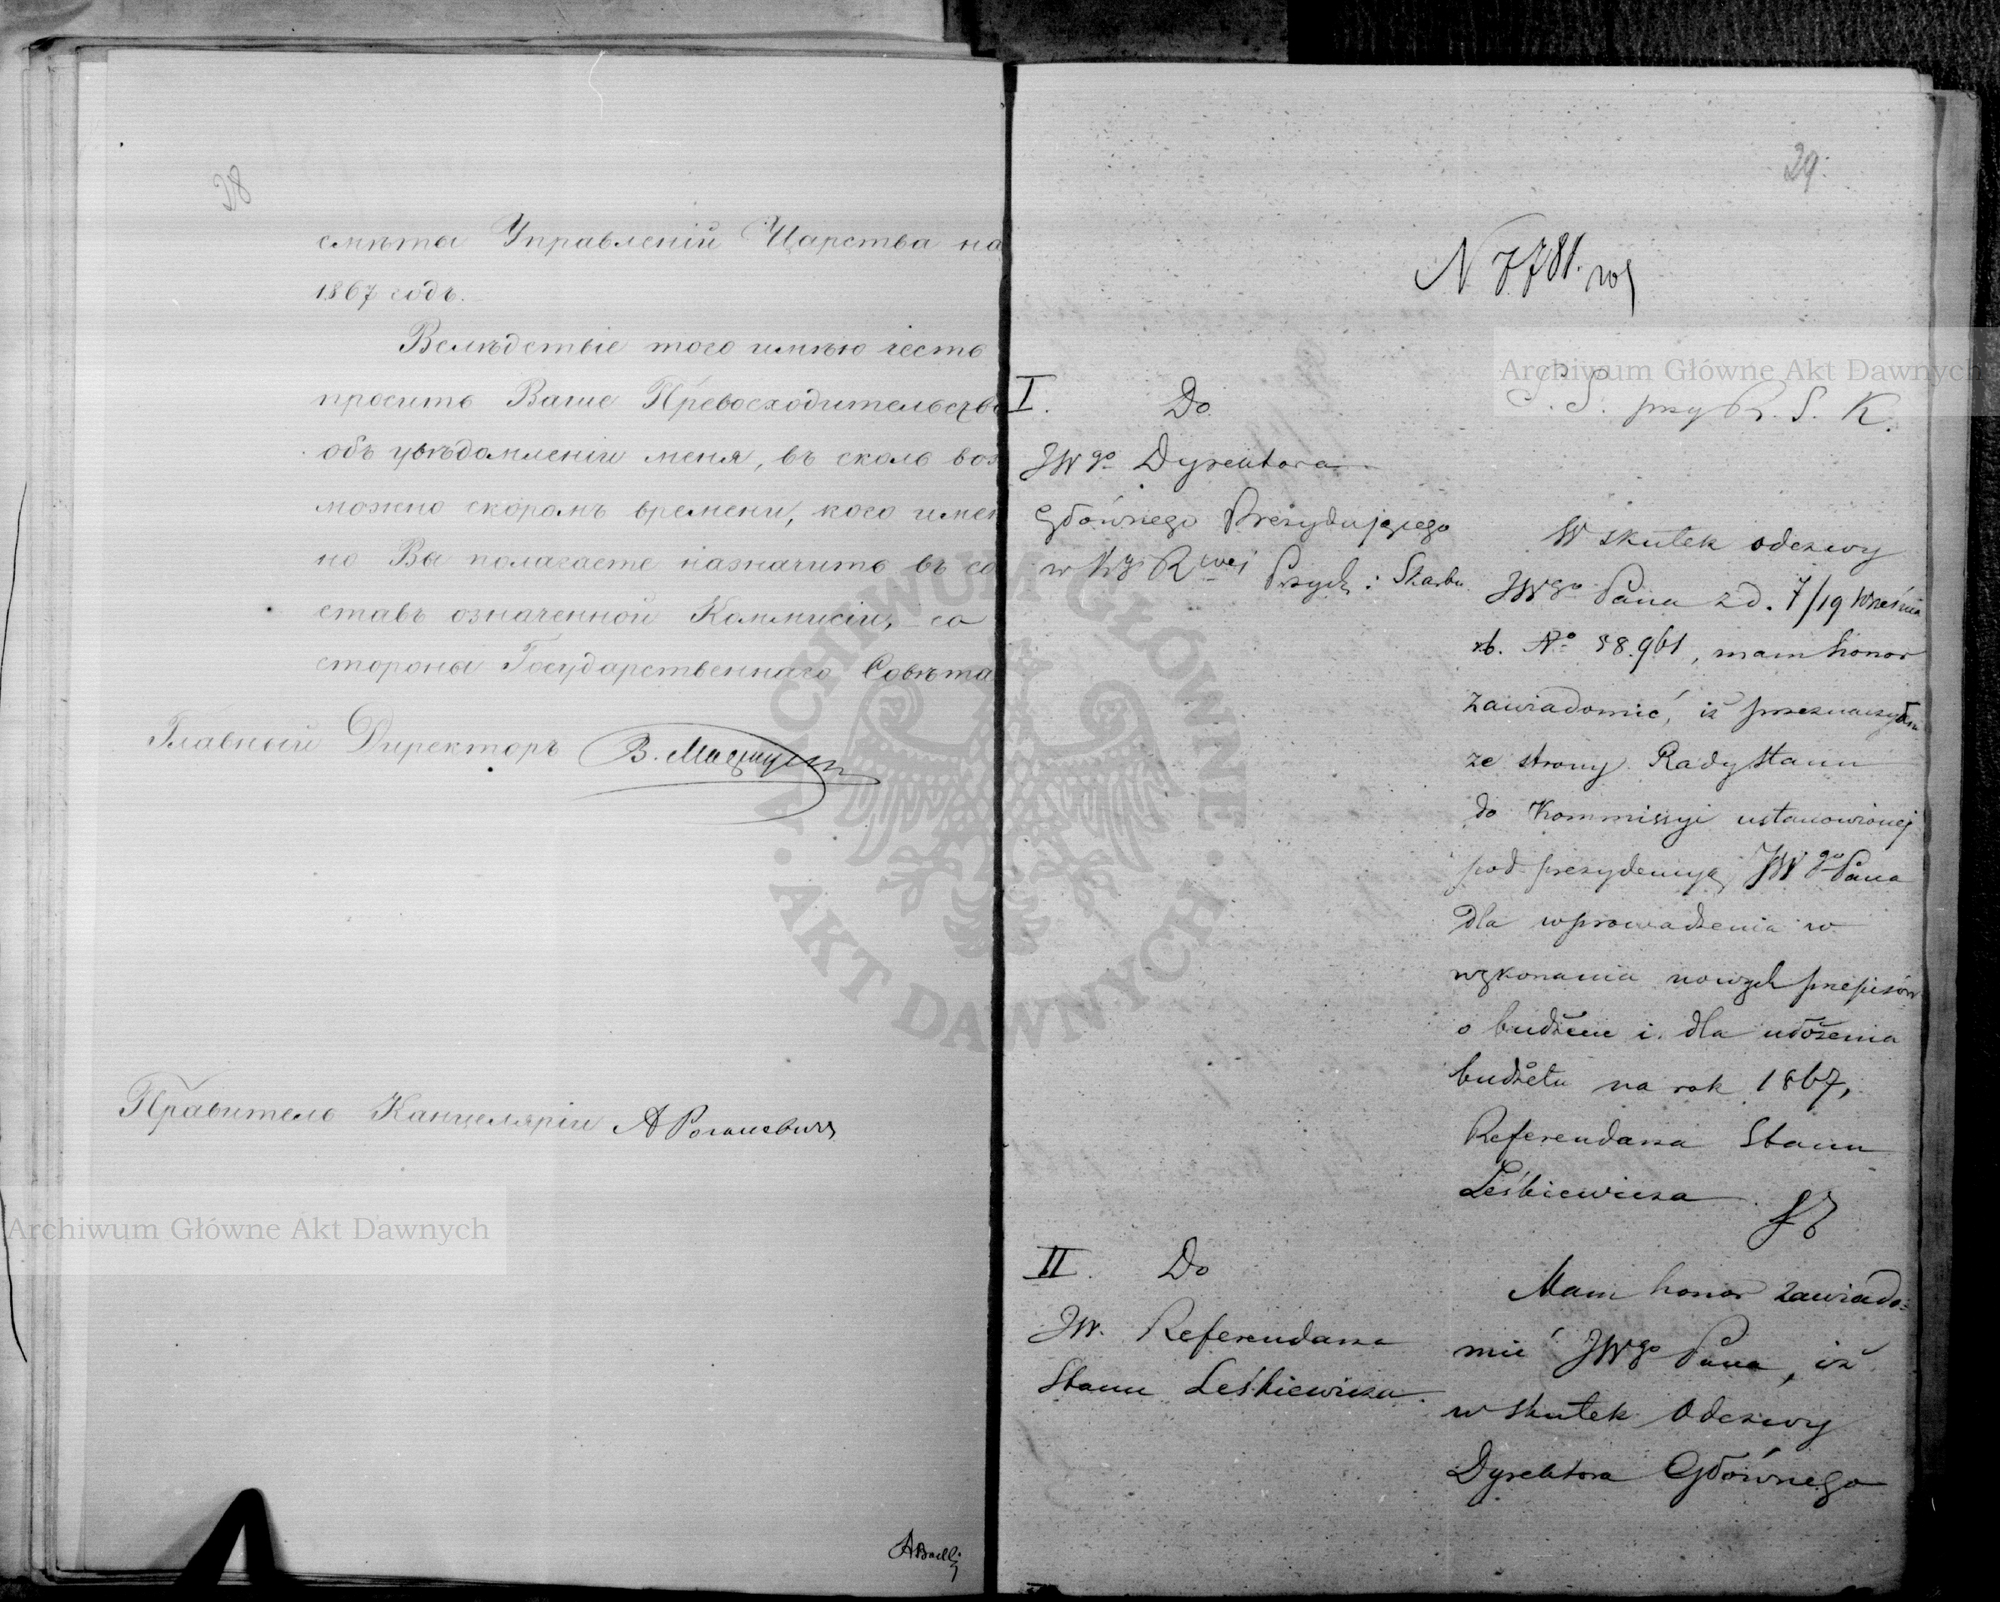 28
смѣты Управленій Царства на
1867 годъ.
Вслѣдствіе того имѣю честь
просить Ваше Превосходительство
объ увѣдомленіи меня, въ сколь воз
можно скоромъ времени, кого имен
но Вы полагаете назначить въ со
ставъ означенной Коммисіи, со
стороны Государственнаго Совѣта
Главный Директоръ
Правитель Канцеляріи
29.
N 7781.
S. przy R. S. K.
I. Do
JWgo Dyrektora
Głównego Prezydującego
w Przych: Skarbu
W skutek odezwy
JWgo Pana z d. 7/19 Września
rb. No 38.961, mam honor
zawiadomić, iż przeznaczyłem
ze strony Rady Stanu
do Kommissyi ustanowionej
pod prezydencyą JWgo Pana
dla wprowadzenia w
wykonania nowych przepisów
o budżecie i dla ułożenia
budżetu na rok 1867,
Referendarza Stanu
Leśkiewicza
II. Do
JW. Referendarza
Stanu Leśkiewicza.
Mam honor zawiado=
mić JWgo Pana, iż
w skutek Odezwy
Dyrektora Głównego
Archiwum Główne Akt Dawnych
Archiwum Główne Akt Dawnych
ARCHIWUM GŁÓWNE · AKT DAWNYCH ·